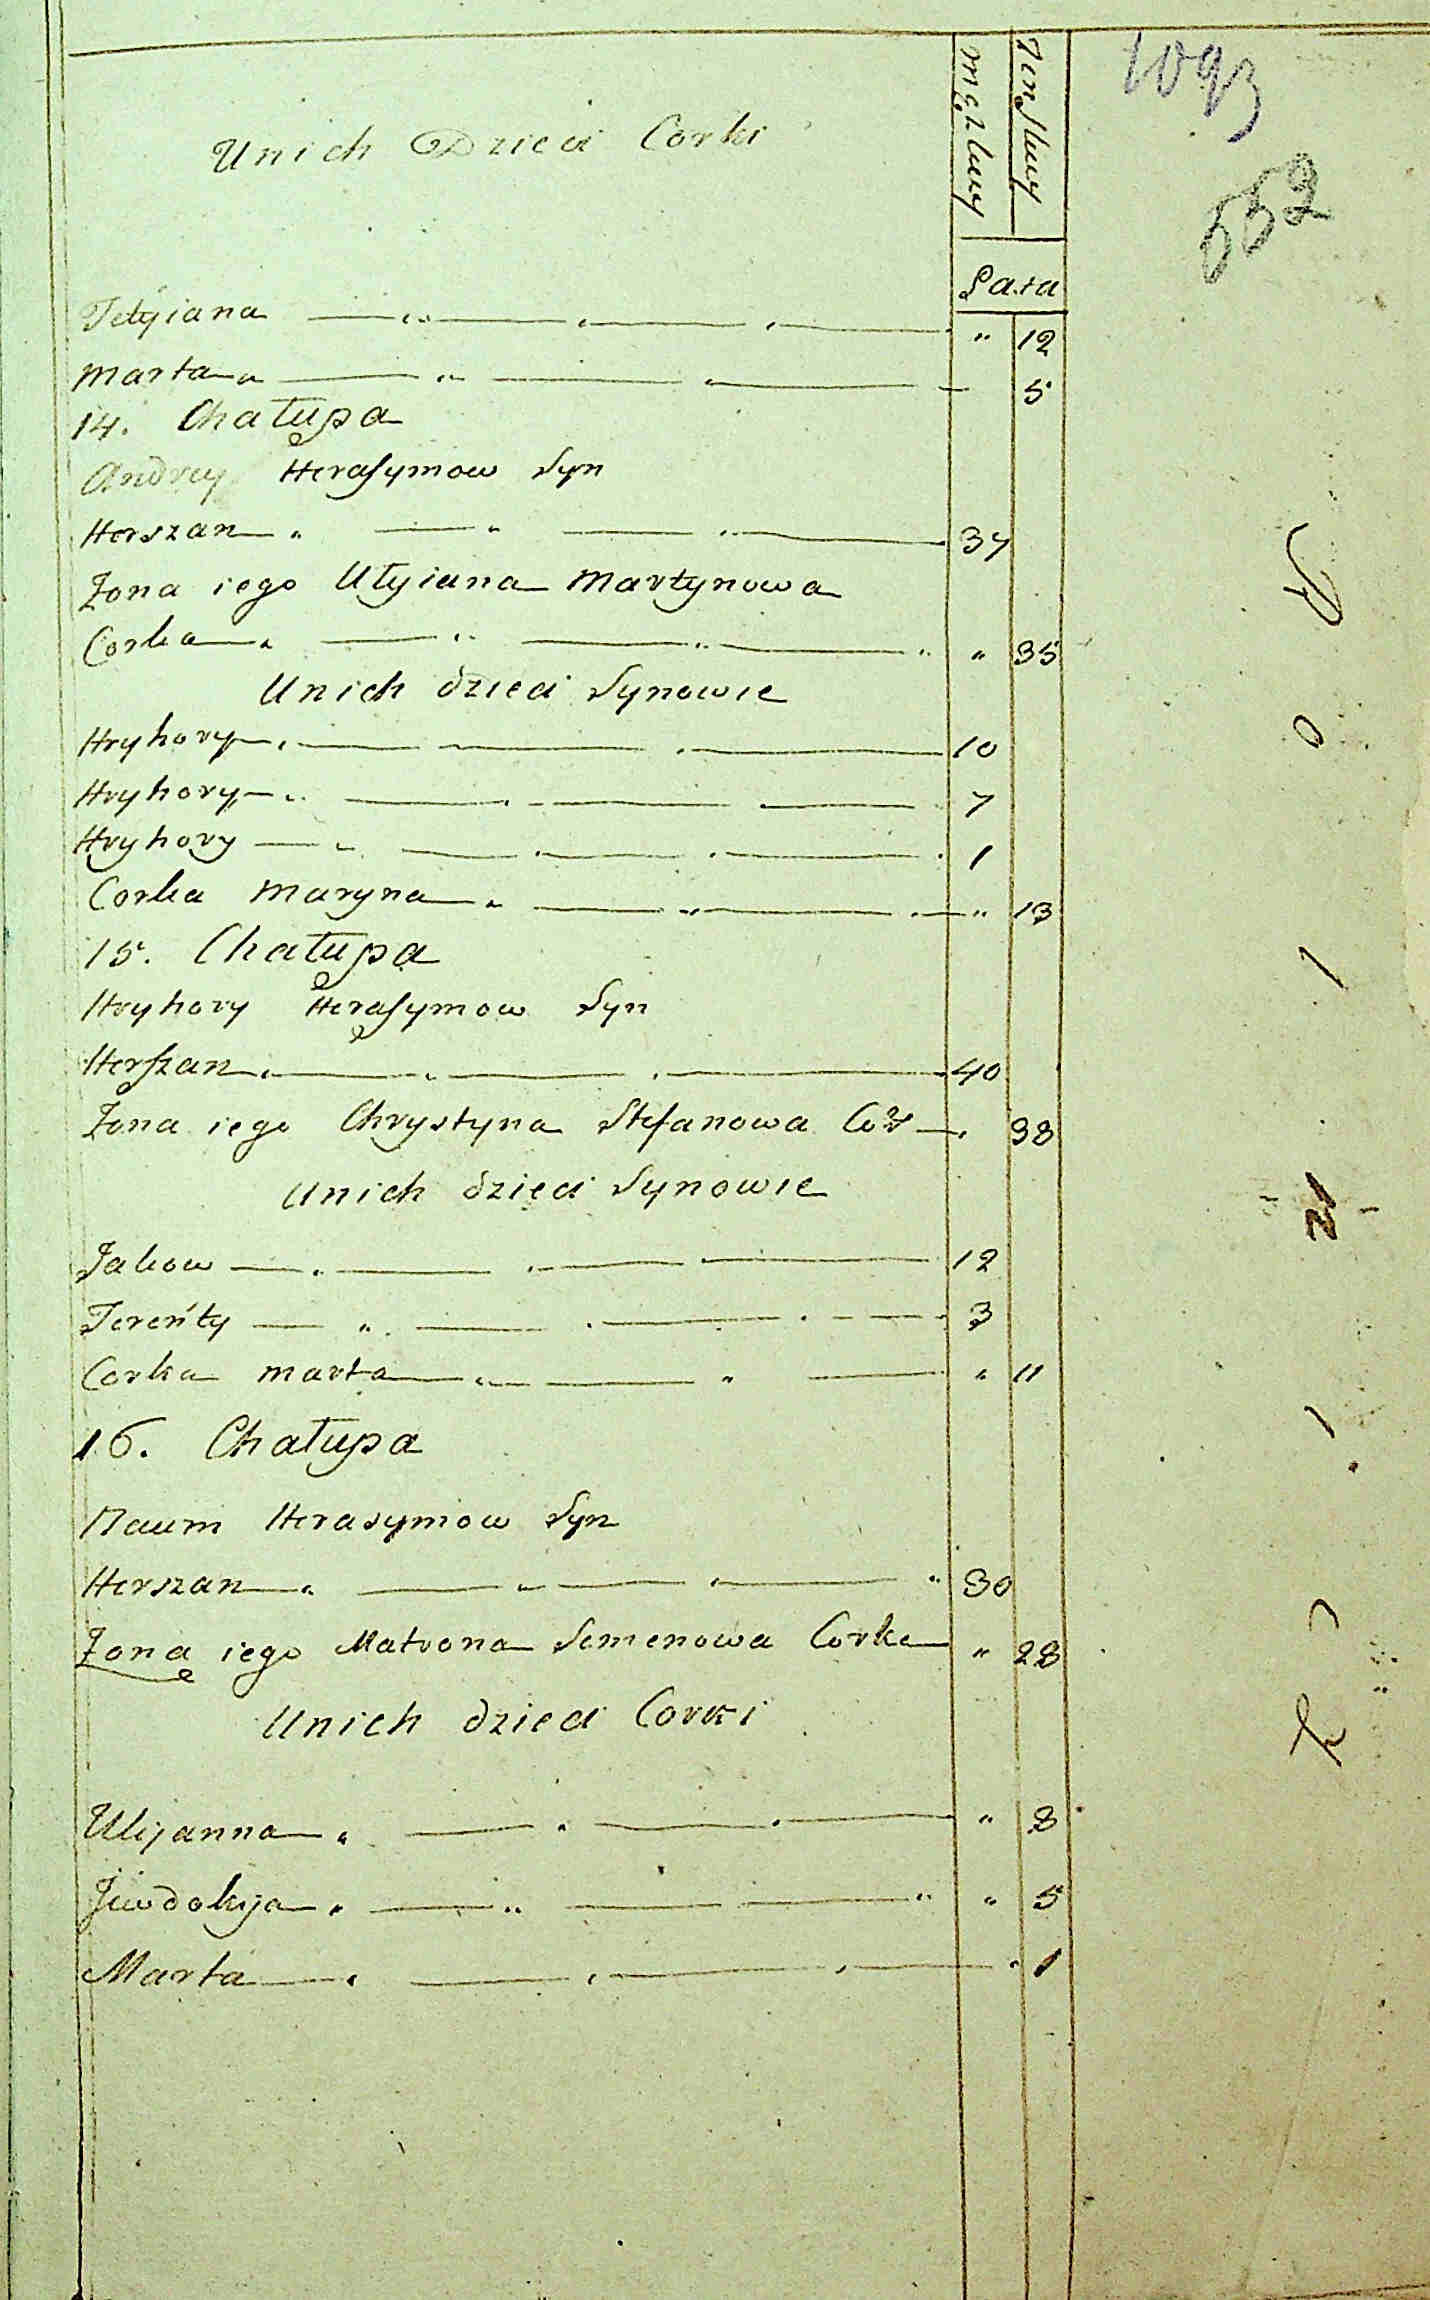 1093
552
Unich Dzieci Corki
Męzkuy Zenskuy
Lata
Tetyiana " 12
Marta 5
14. Chałupa
Andrey Herasymow Syn
Herszan 37
Zona iego Ulyiana Martynowa
Corka " 35
Unich dzieci Synowie
Hryhory 10
Hryhory 7
Hryhory 1
Corka Maryna " 13
15. Chałupa
Hryhory Herasymow Syn
Herszan 40
Zona iego Chrystyna Stefanowa Cor 38
Unich dzieci Synowie
Jakow 12
Terenty 3
Corka Marta " 11
16. Chałupa
Naum Herasymow Syn
Herszan 30
Zona iego Matrona Semenowa Corka " 28
Unich dzieci Corki
Ulijanna " 8
Jewdokija " 5
Marta " 1